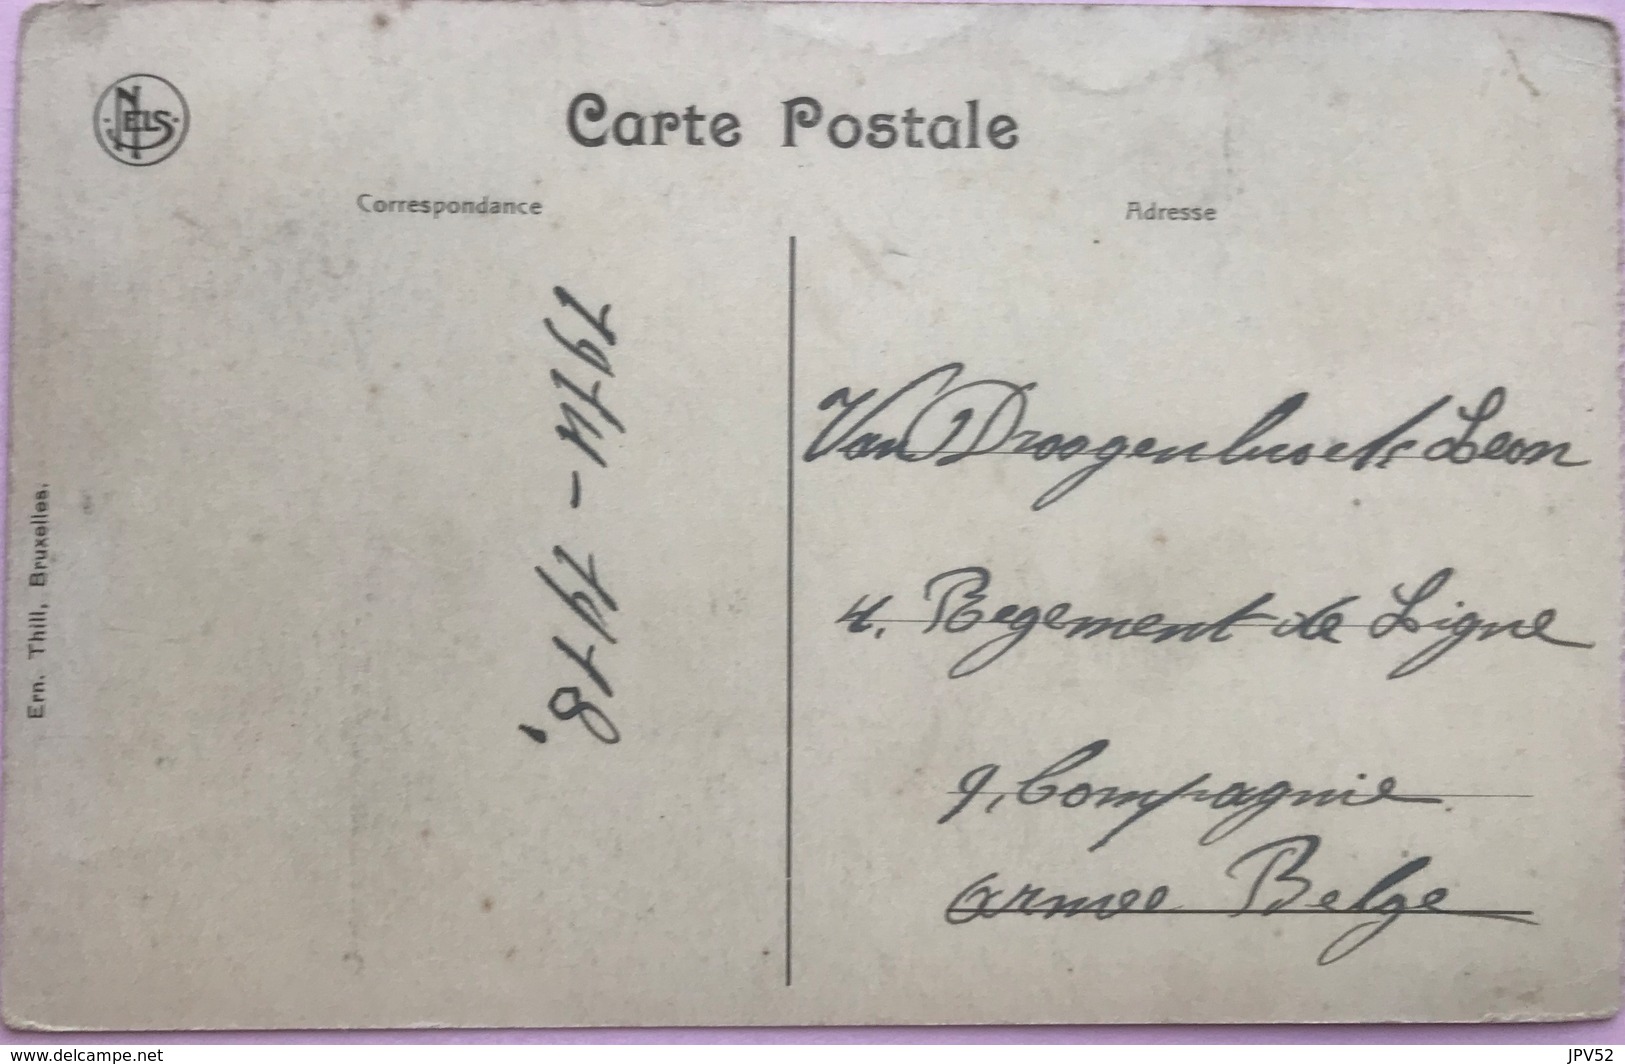 NELS
Carte Postale
Correspondance
Adresse
1914 - 1918,
Van Droogenbroeck Leon
4. Regement de Ligne
9, Compagnie
armee Belge
Ern. Thill, Bruxelles.
www.delcampe.net
JPV52